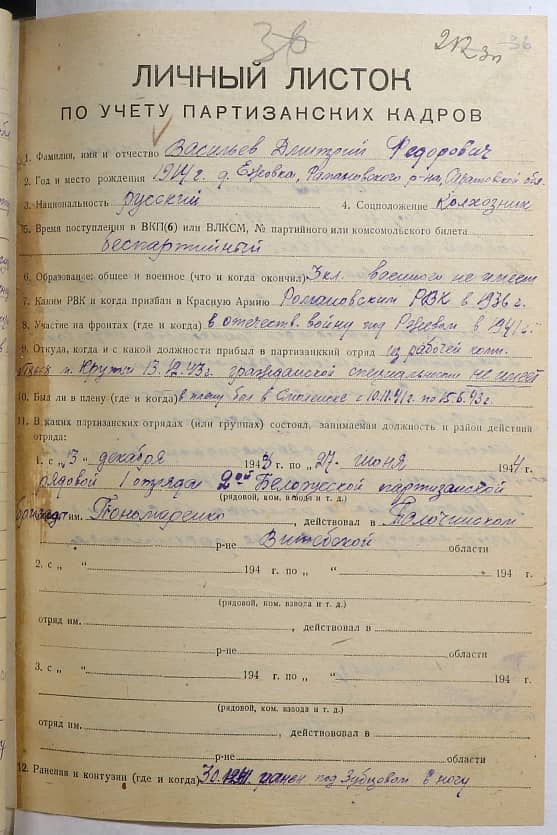 36
36
ЛИЧНЫЙ ЛИСТОК
ПО УЧЕТУ ПАРТИЗАНСКИХ КАДРОВ
1. Фамилия, имя и отчество Васильев Дмитрий Федорович
2. Год и место рождения 1917 г. д. Романовского р-на, Саратовской обл.
3. Национальность русский 4. Соцположение Колхозник
5. Время поступления в ВКП(б) или ВЛКСМ, № партийного или комсомольского билета
беспартийный
6. Образование: общее и военное (что и когда окончил) 3 кл. военного не имеет
7. Каким РВК и когда призван в Красную Армию Романовским РВК в 1936 г.
8. Участие на фронтах (где и когда) в отечеств. войну под Ржевом в 1941 г.
9. Откуда, когда и с какой должности прибыл в партизанский отряд из рабочей
м. Круж 13.12.43 г. гражданской специальности не имеет
10. Был ли в плену (где и когда) в плену был в Смоленске с 10.11.41 г. по 15.6.43 г.
11. В каких партизанских отрядах (или группах) состоял, занимаемая должность и район действия
отряда:
1. с „3" декабря 1943 г. по „27" июня 1944 г.
рядовой 1 отряда 2ой Беложеской партизанской
(рядовой, ком. взвода и т. д.)
им. Пономаренко, действовал в Толочинском
р-не Витебской области
2. с „ " 194 г. по „ " 194 г.
(рядовой, ком. взвода и т. д.)
отряд им. , действовал в
р-не области
3. с „ " 194 г. по „ " 194 г.
(рядовой, ком. взвода и т. д.)
отряд им. , действововал в
р-не области
12. Ранения и контузии (где и когда) ранен под Зубцовом в ногу